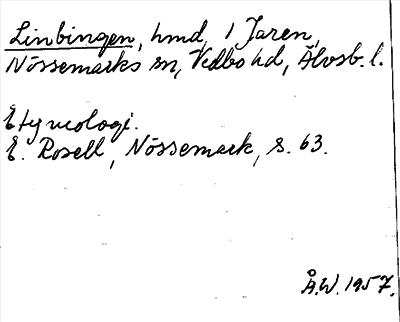 Linbingen, hmd, i Jaren,
Nössemarks sn, Vedbo hd, Älvsb. l.
Etymologi.
E. Rosell, Nössemark, s. 63.
Å.W. 1957.